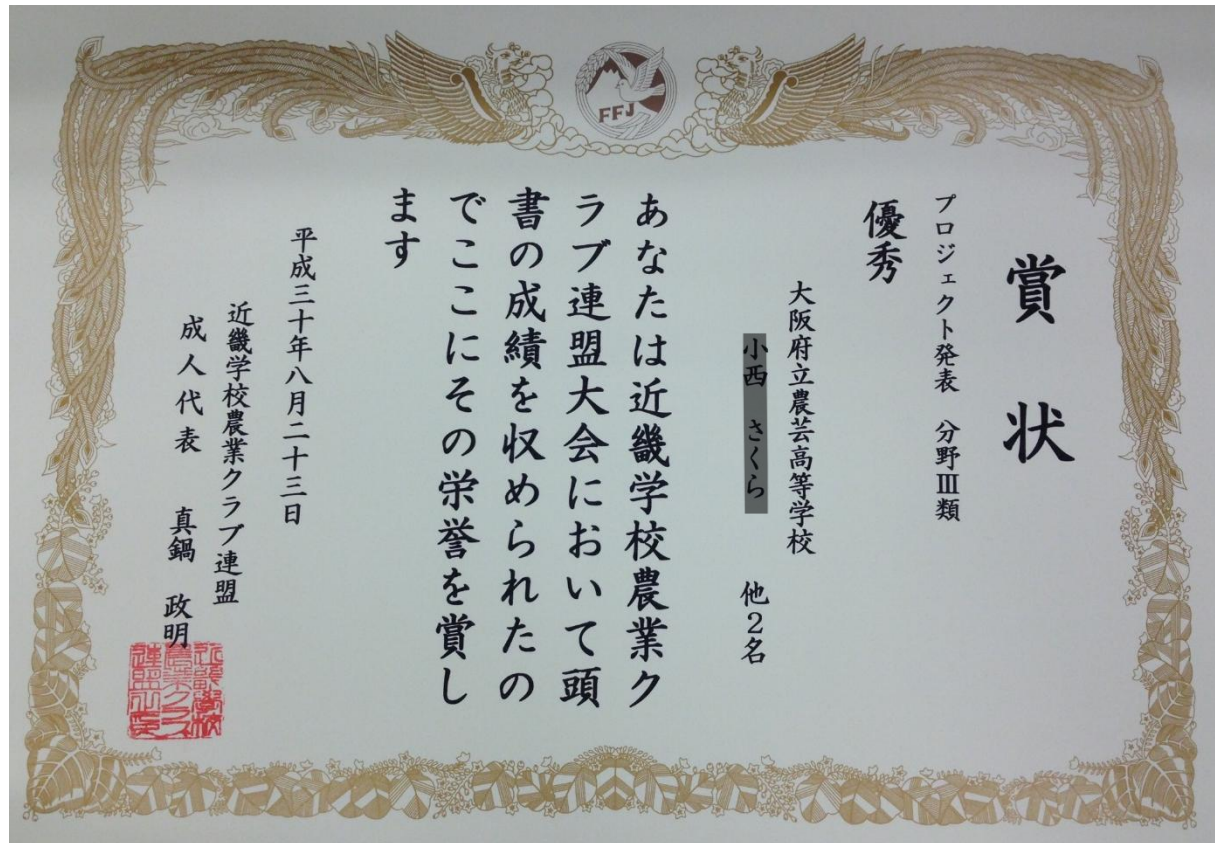 FFJ
賞状
プロジェクト発表 分野Ⅲ類
優秀
大阪府立農芸高等学校
小西 さくら 他2名
あなたは近畿学校農業ク
ラブ連盟大会において頭
書の成績を収められたの
でここにその栄誉を賞し
ます
平成三十年八月二十三日
近畿学校農業クラブ連盟
成人代表 真鍋 政明